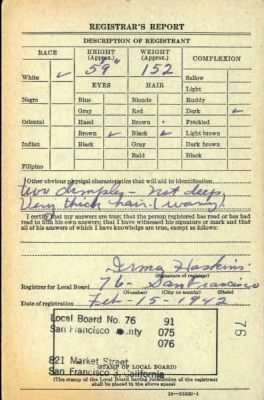 REGISTRAR'S REPORT
DESCRIPTION OF REGISTRANT
RACE HEIGHT (Approx.) WEIGHT (Approx.) COMPLEXION
White ✓ 59" 152 Sallow
EYES HAIR Light
Negro Blue Blonde Ruddy
Gray Red Dark ✓
Oriental Hazel Brown Freckled
Brown ✓ Black ✓ Light brown
Indian Black Gray Dark brown
Bald Black
Filipino
Other obvious physical characteristics that will aid in identification
two dimples - not deep
Very thick hair (wavy)
I certify that my answers are true; that the person registered has read or has had
read to him his own answers; that I have witnessed his signature or mark and that
all of his answers of which I have knowledge are true, except as follows:
Irma Haskins
(Signature of registrar)
Registrar for Local Board 76 - San Francisco
(Number) (City or county) (State)
Date of registration Feb - 15 - 1942
Local Board No. 76 91
San Francisco County 075
076
76
821 Market Street
San Francisco California
(STAMP OF LOCAL BOARD)
(The stamp of the Local Board having jurisdiction of the registrant
shall be placed in the above space)